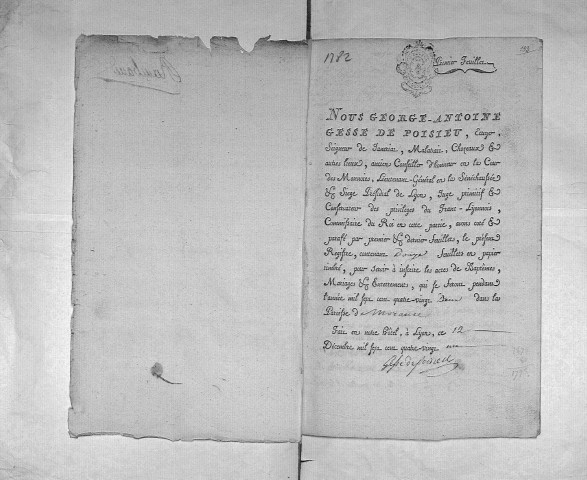 1782
Premier Feuillet
NOUS GEORGE-ANTOINE
GESSE DE POISIEU, Ecuyer,
Seigneur de Malatrait, &
autres lieux, ancien Conseiller d'honneur en la Cour
des Monnoies, Lieutenant-Général en la Sénéchaussée
& Siege Présidial de Lyon, Juge primitif &
Conservateur des privileges du Franc-Lyonnois,
Commissaire du Roi en cette partie, avons coté &
paraffé par premier & dernier feuillets, le présent
Registre, contenant Douze feuillets en papier
timbré, pour servir à inscrire les actes de Baptêmes,
Mariages & Enterremens, qui se feront pendant
l'année mil sept cent quatre-vingt deux dans la
Paroisse de
Fait en notre Hôtel, à Lyon, ce 12
Décembre mil sept cent quatre-vingt un